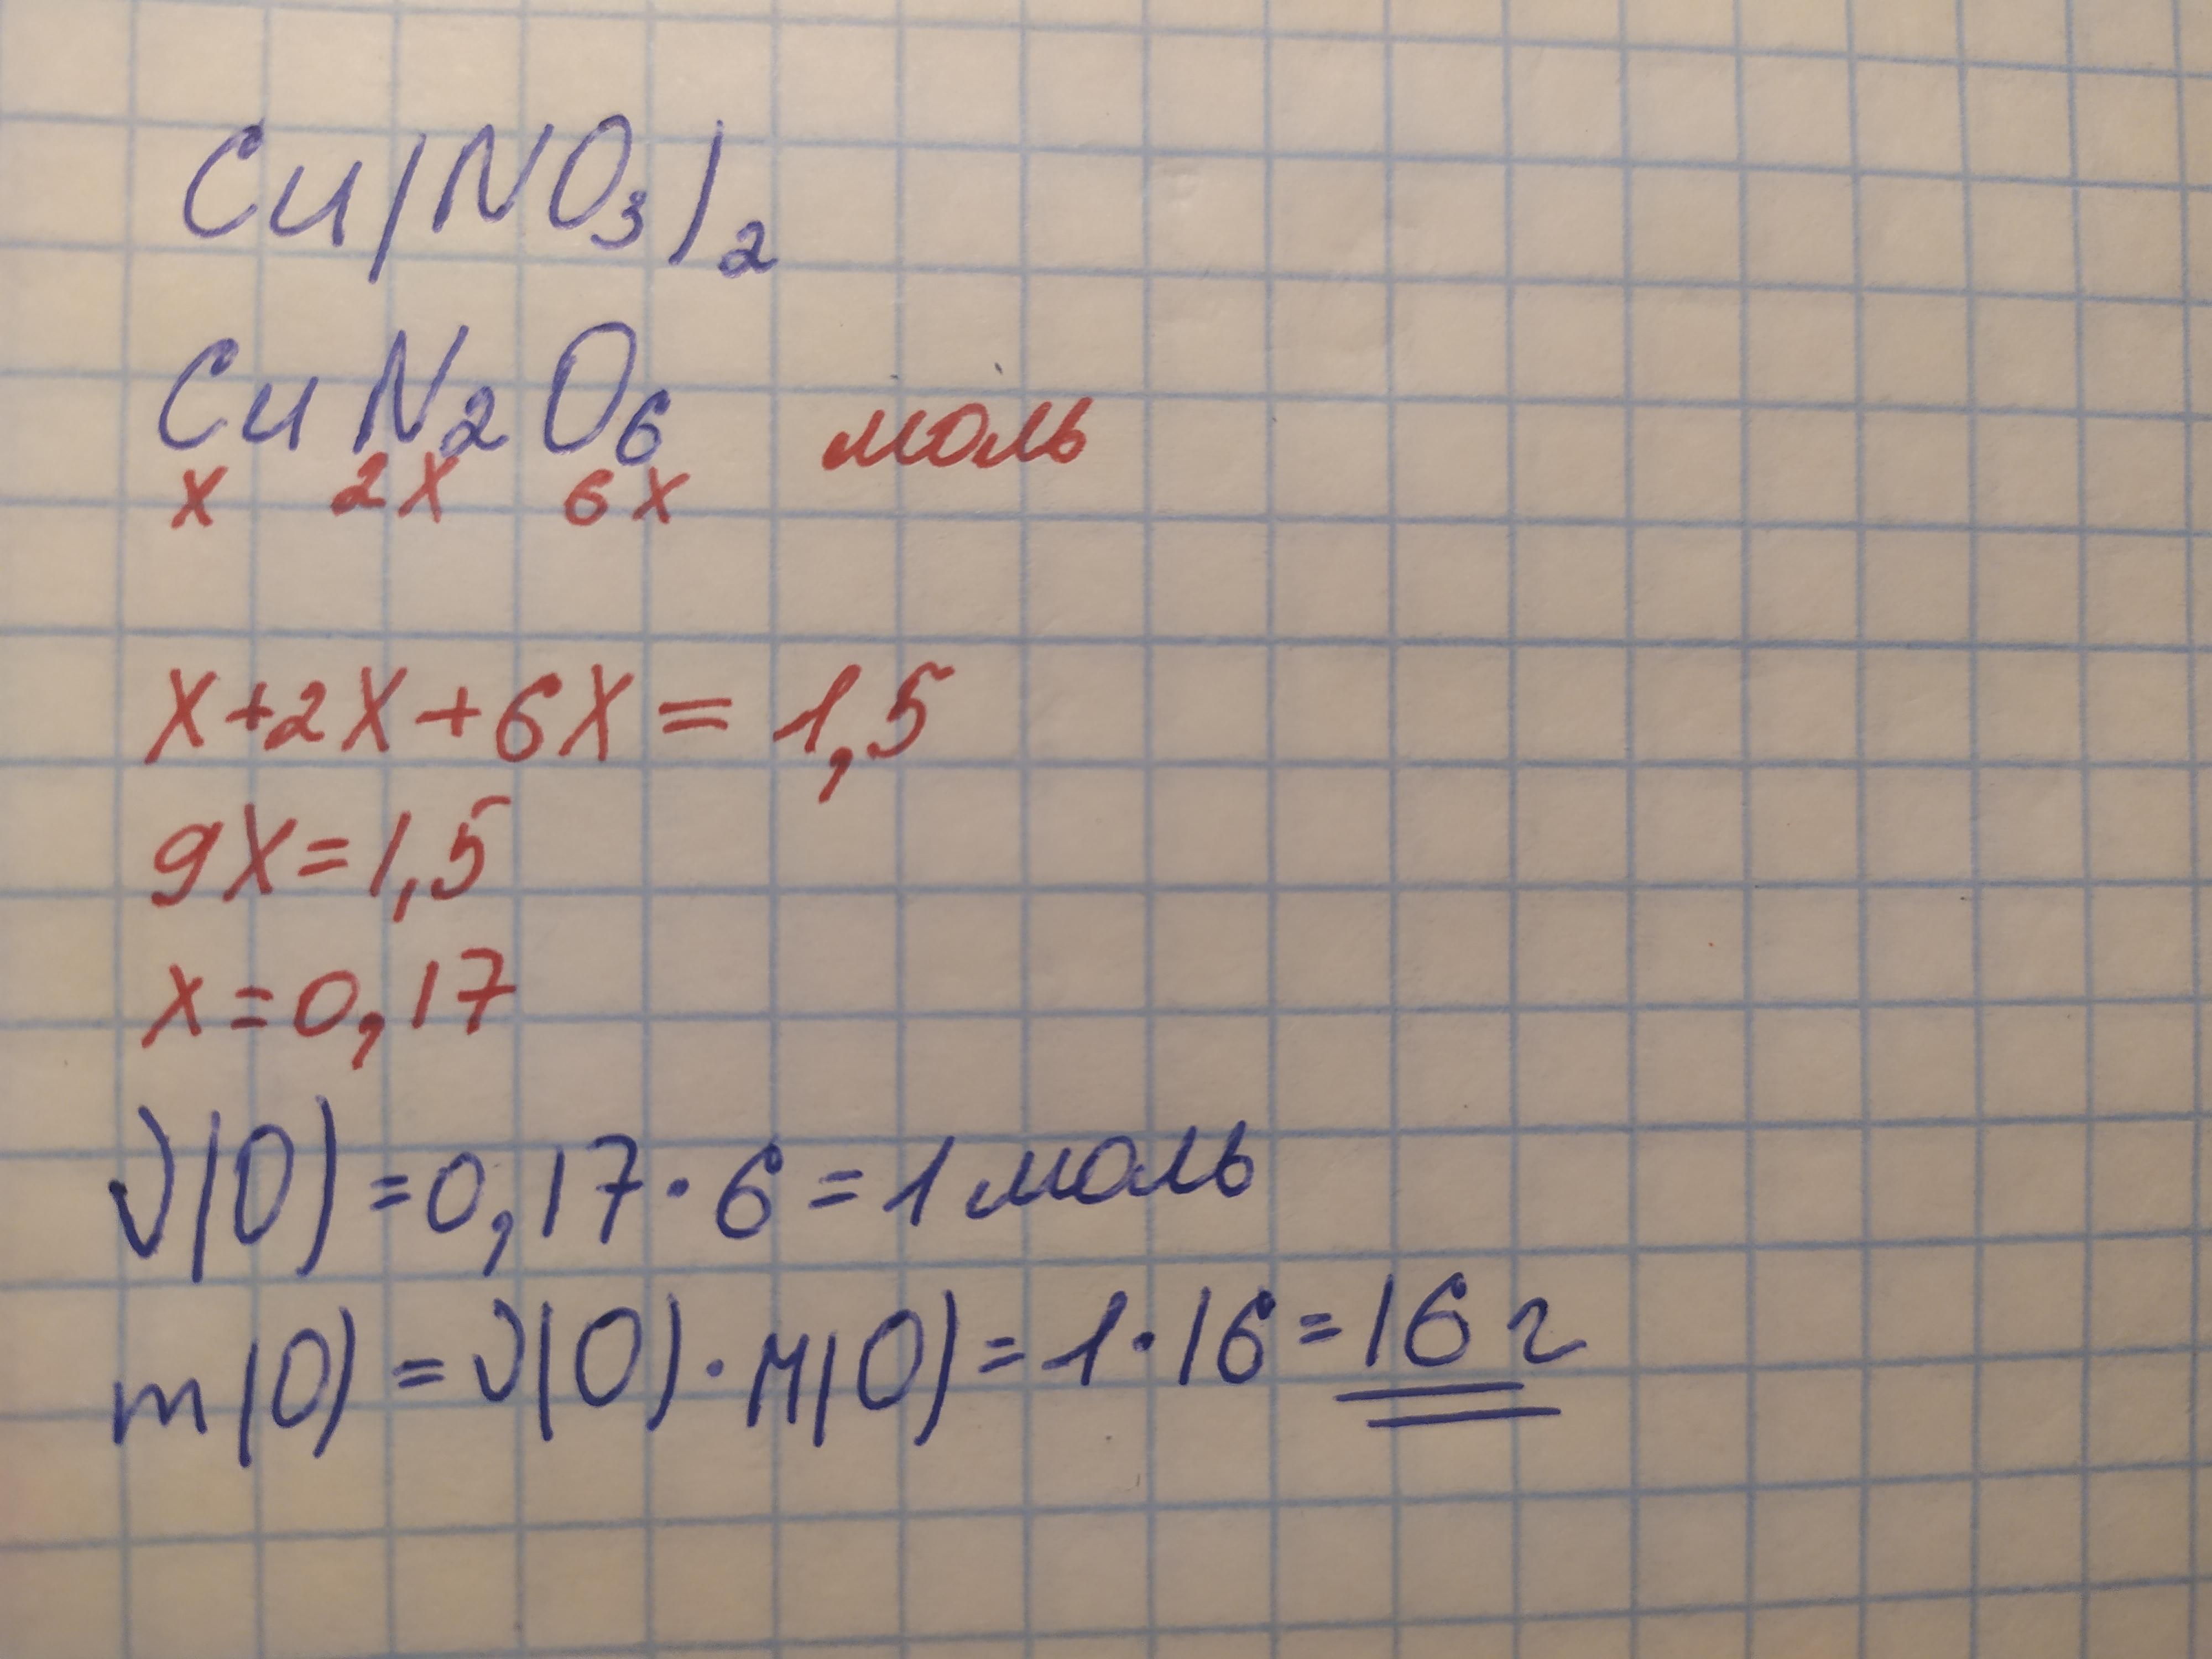 Cu(NO₃)₂
CuN₂O₆ моль
x 2x 6x
x+2x+6x=1,5
9x=1,5
x=0,17
ν(O)=0,17·6=1 моль
m(O)=ν(O)·M(O)=1·16=16 г